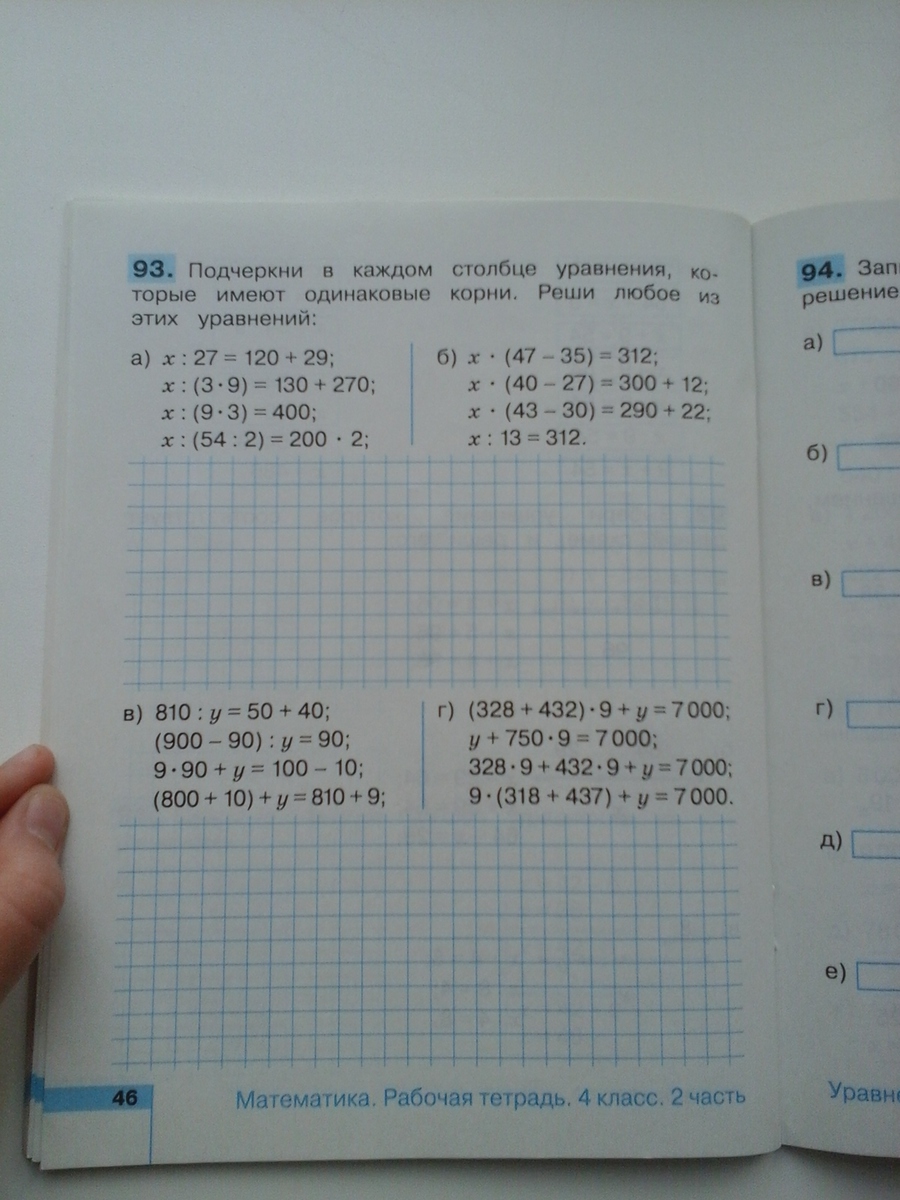 93. Подчеркни в каждом столбце уравнения, ко-
торые имеют одинаковые корни. Реши любое из
этих уравнений:
а) x : 27 = 120 + 29;
x : (3 · 9) = 130 + 270;
x : (9 · 3) = 400;
x : (54 : 2) = 200 · 2;
б) x · (47 – 35) = 312;
x · (40 – 27) = 300 + 12;
x · (43 – 30) = 290 + 22;
x : 13 = 312.
в) 810 : y = 50 + 40;
(900 – 90) : y = 90;
9 · 90 + y = 100 – 10;
(800 + 10) + y = 810 + 9;
г) (328 + 432) · 9 + y = 7 000;
y + 750 · 9 = 7 000;
328 · 9 + 432 · 9 + y = 7 000;
9 · (318 + 437) + y = 7 000.
46
Математика. Рабочая тетрадь. 4 класс. 2 часть
94.
решение
а)
б)
в)
г)
д)
е)